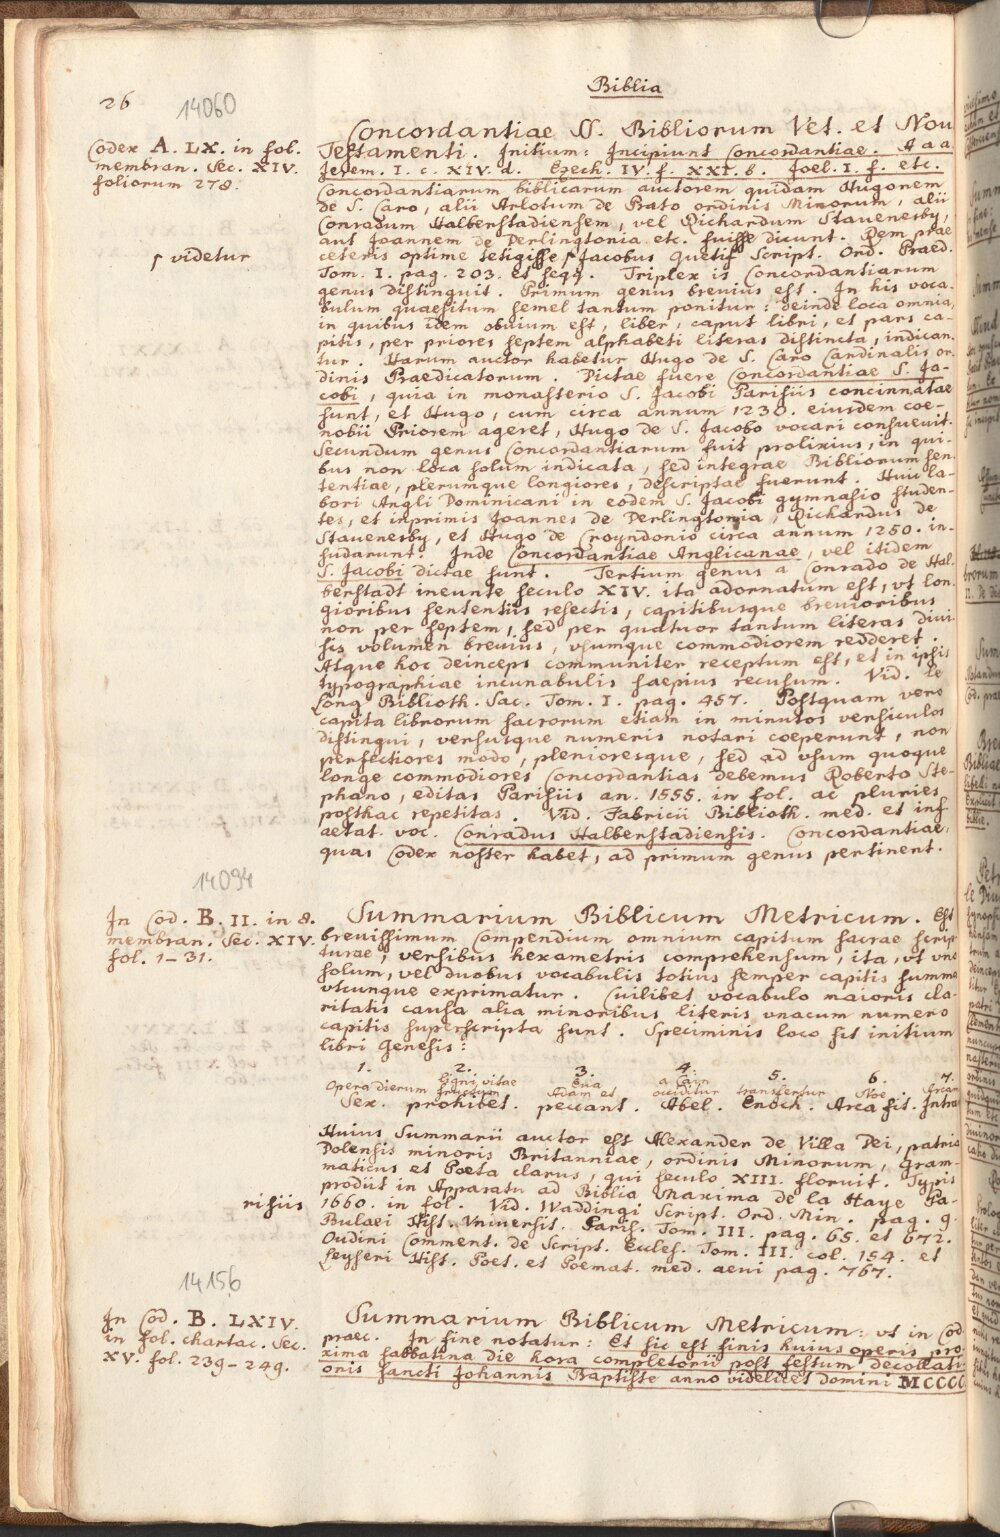 Biblia
26
14060
Codex A. LX. in fol.
membran. Sec. XIV.
foliorum 278.
Concordantiae SS. Bibliorum Vet. et Noui
Testamenti. Initium: Incipiunt Concordantiae. A a a
Jerem. I. c. XIV. d. Ezech. IV. f. XXI. b. Joel. I. f. etc.
Concordantiarum biblicarum auctorem quidam Hugonem
de S. Caro, alii Arlotum de Prato ordinis Minorum, alii
Conradum Halberstadiensem, vel Richardum Stauenesby,
aut Joannem de Derlingtonia etc. fuisse dicunt. Rem prae
ceteris optime tetigisse ſ Jacobus Quetif Script. Ord. Praed.
ſ videtur
Tom. I. pag. 203. et seqq. Triplex is Concordantiarum
genus distinguit. Primum genus breuius est. In his voca-
bulum quaesitum semel tantum ponitur: deinde loca omnia,
in quibus idem obuium est, liber, caput libri, et pars ca-
pitis, per priores septem alphabeti literas distincta, indican-
tur. Harum auctor habetur Hugo de S. Caro Cardinalis or-
dinis Praedicatorum. Dictae fuere Concordantiae S. Ja-
cobi, quia in monasterio S. Jacobi Parisiis concinnatae
sunt, et Hugo, cum circa annum 1230. eiusdem coe-
nobii Priorem ageret, Hugo de S. Jacobo vocari consueuit.
Secundum genus Concordantiarum fuit prolixius, in qui-
bus non loca solum indicata, sed integrae Bibliorum sen-
tentiae, plerumque longiores, descriptae fuerunt. Huic la-
bori Angli Dominicani in eodem S. Jacobi gymnasio studen-
tes, et inprimis Joannes de Derlingtonia, Richardus de
Stauenesby, et Hugo de Croyndonio circa annum 1250. in-
sudarunt. Inde Concordantiae Anglicanae, vel itidem
S. Jacobi dictae sunt. Tertium genus a Conrado de Hal-
berstadt ineunte seculo XIV. ita adornatum est, vt lon-
gioribus sententiis resectis, capitibusque breuioribus
non per septem, sed per quatuor tantum literas diui-
sis volumen breuius, vsumque commodiorem redderet.
Atque hoc deinceps communiter receptum est, et in ipsis
typographiae incunabulis saepius recusum. Vid. le
Long Biblioth. Sac. Tom. I. pag. 457. Postquam vero
capita librorum sacrorum etiam in minutos versiculos
distingui, versusque numeris notari coeperunt, non
perfectiores modo, plenioresque, sed ad vsum quoque
longe commodiores Concordantias debemus Roberto Ste-
phano, editas Parisiis an. 1555. in fol. ac pluries
posthac repetitas. Vid. Fabricii Biblioth. med. et inf.
aetat. voc. Conradus Halberstadiensis. Concordantiae,
quas Codex noster habet, ad primum genus pertinent.
14094
In Cod. B. II. in 8.
membran. Sec. XIV.
fol. 1-31.
Summarium Biblicum Metricum. Est
breuissimum Compendium omnium capitum sacrae scrip-
turae, versibus hexametris comprehensum, ita, vt vno
solum, vel duobus vocabulis totius semper capitis summa
vtcunque exprimatur. Cuilibet vocabulo maioris cla-
ritatis causa alia minoribus literis vnacum numero
capitis superscripta sunt. Speciminis loco sit initium
libri Genesis:
1. 2. 3. 4. 5. 6. 7.
Opera dierum ligni vitae Eua Adam et a Cain occiditur transfertur Noe Arcam
Sex. prohibet. peccant. Abel. Enoch. Arca fit. Intra
Huius Summarii auctor est Alexander de Villa Dei, patria
Dolensis minoris Britanniae, ordinis Minorum, Gram-
maticus et Poeta clarus, qui seculo XIII. floruit. Typis
prodiit in Apparatu ad Biblia Maxima de la Haye Pa-
risiis 1660. in fol. Vid. Waddingi Script. Ord. Min. pag. 9.
Bulaei Hist. Vniuersit. Paris. Tom. III. pag. 65. et 672.
Oudini Comment. de Script. Eccles. Tom. III. col. 154. et
Leyseri Hist. Poet. et Poemat. med. aeui pag. 767.
14156
In Cod. B. LXIV.
in fol. chartac. Sec.
XV. fol. 239-249.
Summarium Biblicum Metricum: vt in Cod.
praec. In fine notatur: Et sic est finis huius operis pro-
xima sabbatina die hora completorii post festum decollati-
onis sancti Johannis Baptiste anno videlicet domini MCCCC